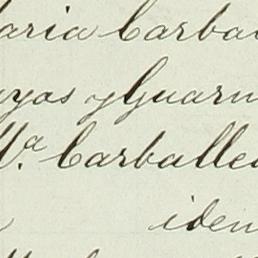 aria Carba
yas y Guarn
Mª Carballe
iden